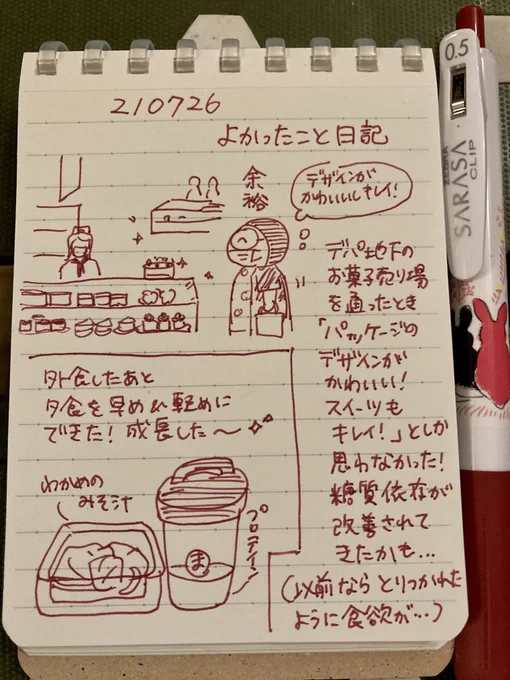 210726
よかったこと日記
余裕
デザインが
かわいいしキレイ!
デパ地下の
お菓子売り場
を通ったとき
「パッケージの
デザインが
かわいい!
スイーツも
キレイ!」としか
思わなかった!
糖質依存が
改善されて
きたかも…
(以前なら とりつかれた
ように食欲が…)
外食したあと
夕食を早め&軽めに
できた! 成長した〜
わかめの
みそ汁
プロテイン
ま
0.5
ZEBRA
SARASA
CLIP